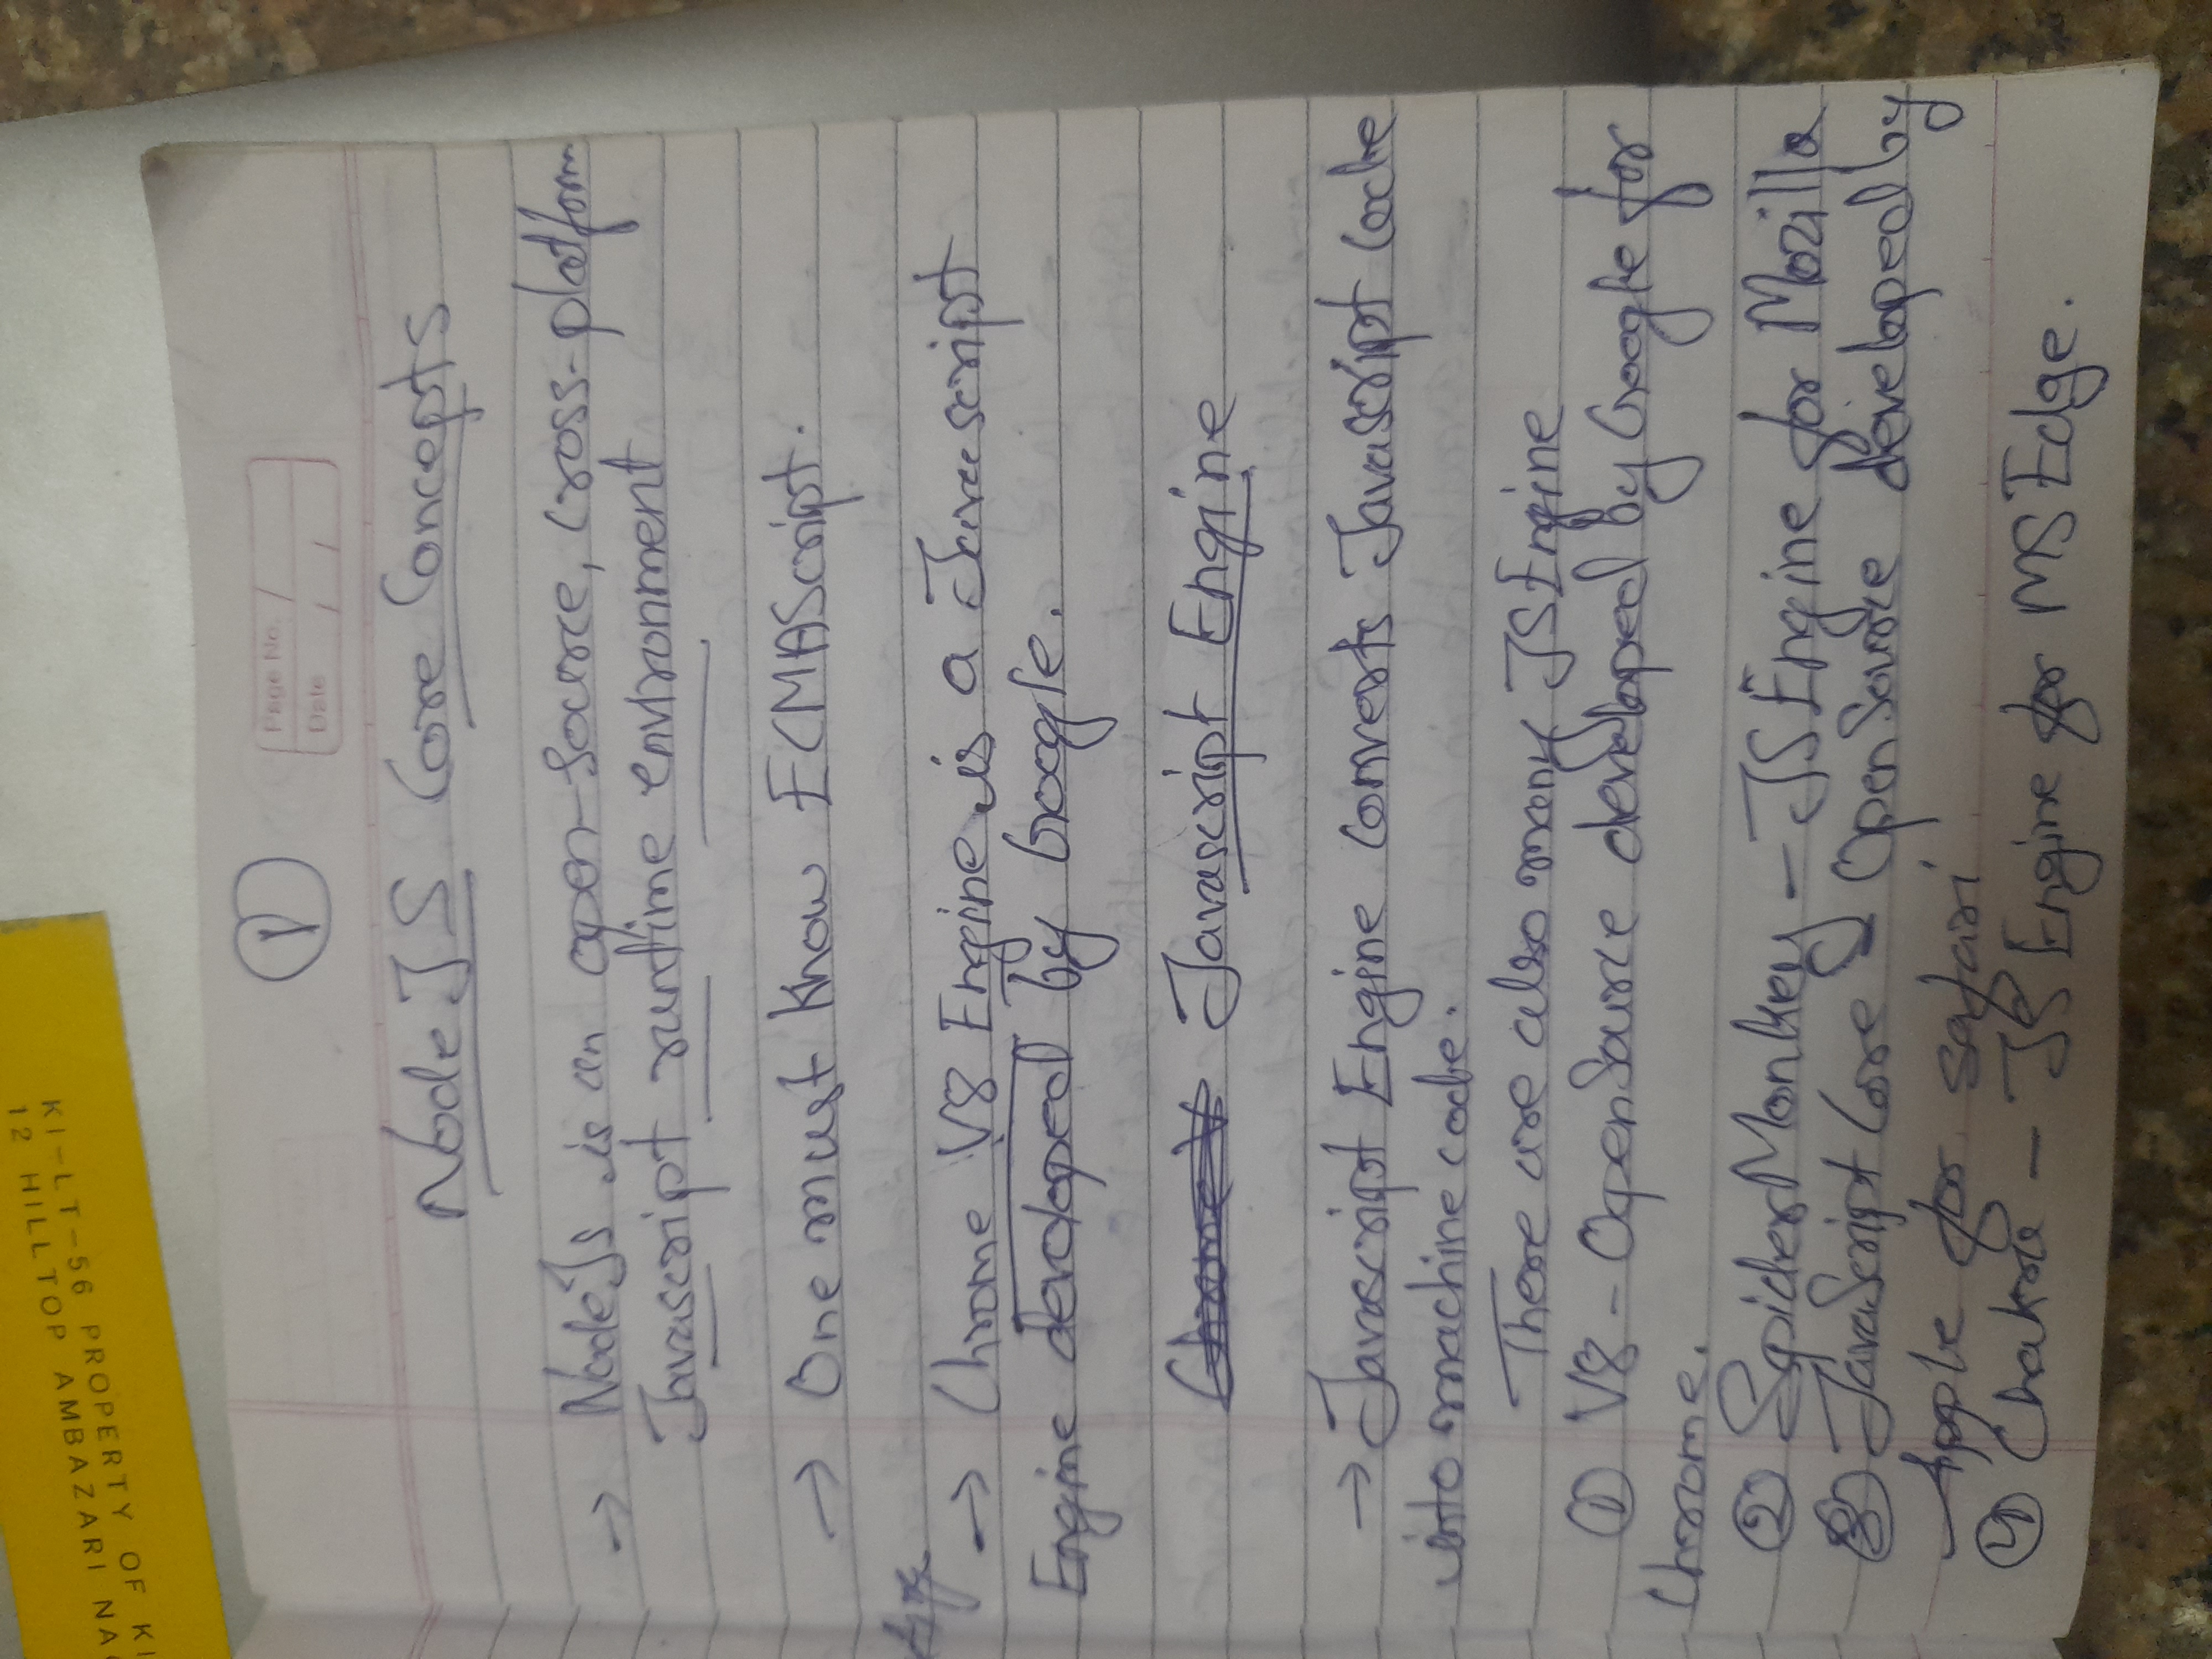 12 HILLTOP AMBAZARI NAG
KI-LT-56 PROPERTY OF KI
1
Page No.
Date
NodeJS Core Concepts
→ NodeJs is an open-source, cross-platform
Javascript runtime environment
→ One must know ECMAScript.
→ Chrome V8 Engine is a Javascript
Engine developed by Google.
Chrome V Javascript Engine
→ Javascript Engine converts Javascript code
into machine code.
There are also many JS Engine
① V8 - OpenSource developed by Google for
Chrome.
② SpiderMonkey - JS Engine for Mozilla
③ JavaScript Core - Open Source developed by
Apple for safari
④ Chakra - JS Engine for MS Edge.